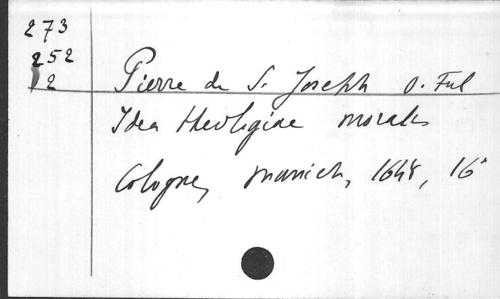 273
252
2
Pierre de S. Joseph O. Ful
Idea theologiae moralis
Cologne, Munich, 1648, 16°